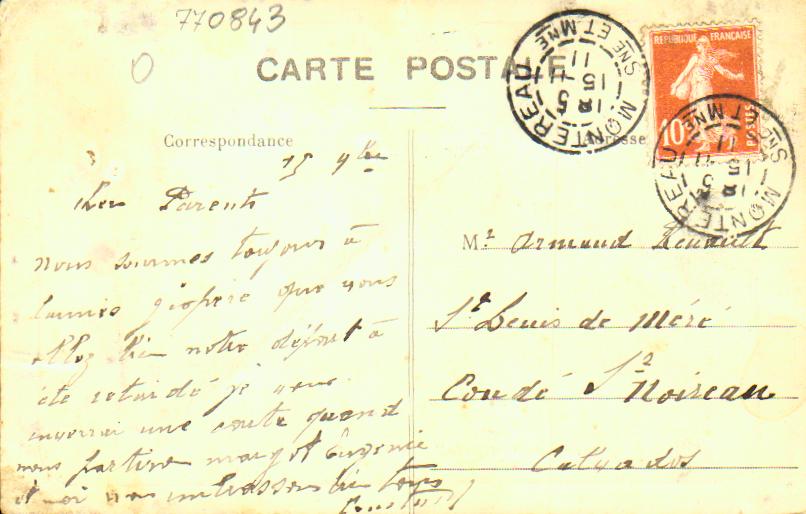 770843
CARTE POSTALE
REPUBLIQUE FRANÇAISE
10
POSTES
MONTEREAU
SNE ET MNE
MONTEREAU
SNE ET MNE
Correspondance
Adresse
15 9bre
Cher Parents
nous sommes toujours à
que vous
allez bien notre départ à
été retardé je vous
enverrai une carte quand
nous margot Eugenie
et moi vous embrassons bien tous
Mr Armand
St Denis de Méré
Condé sr Noireau
Calvados